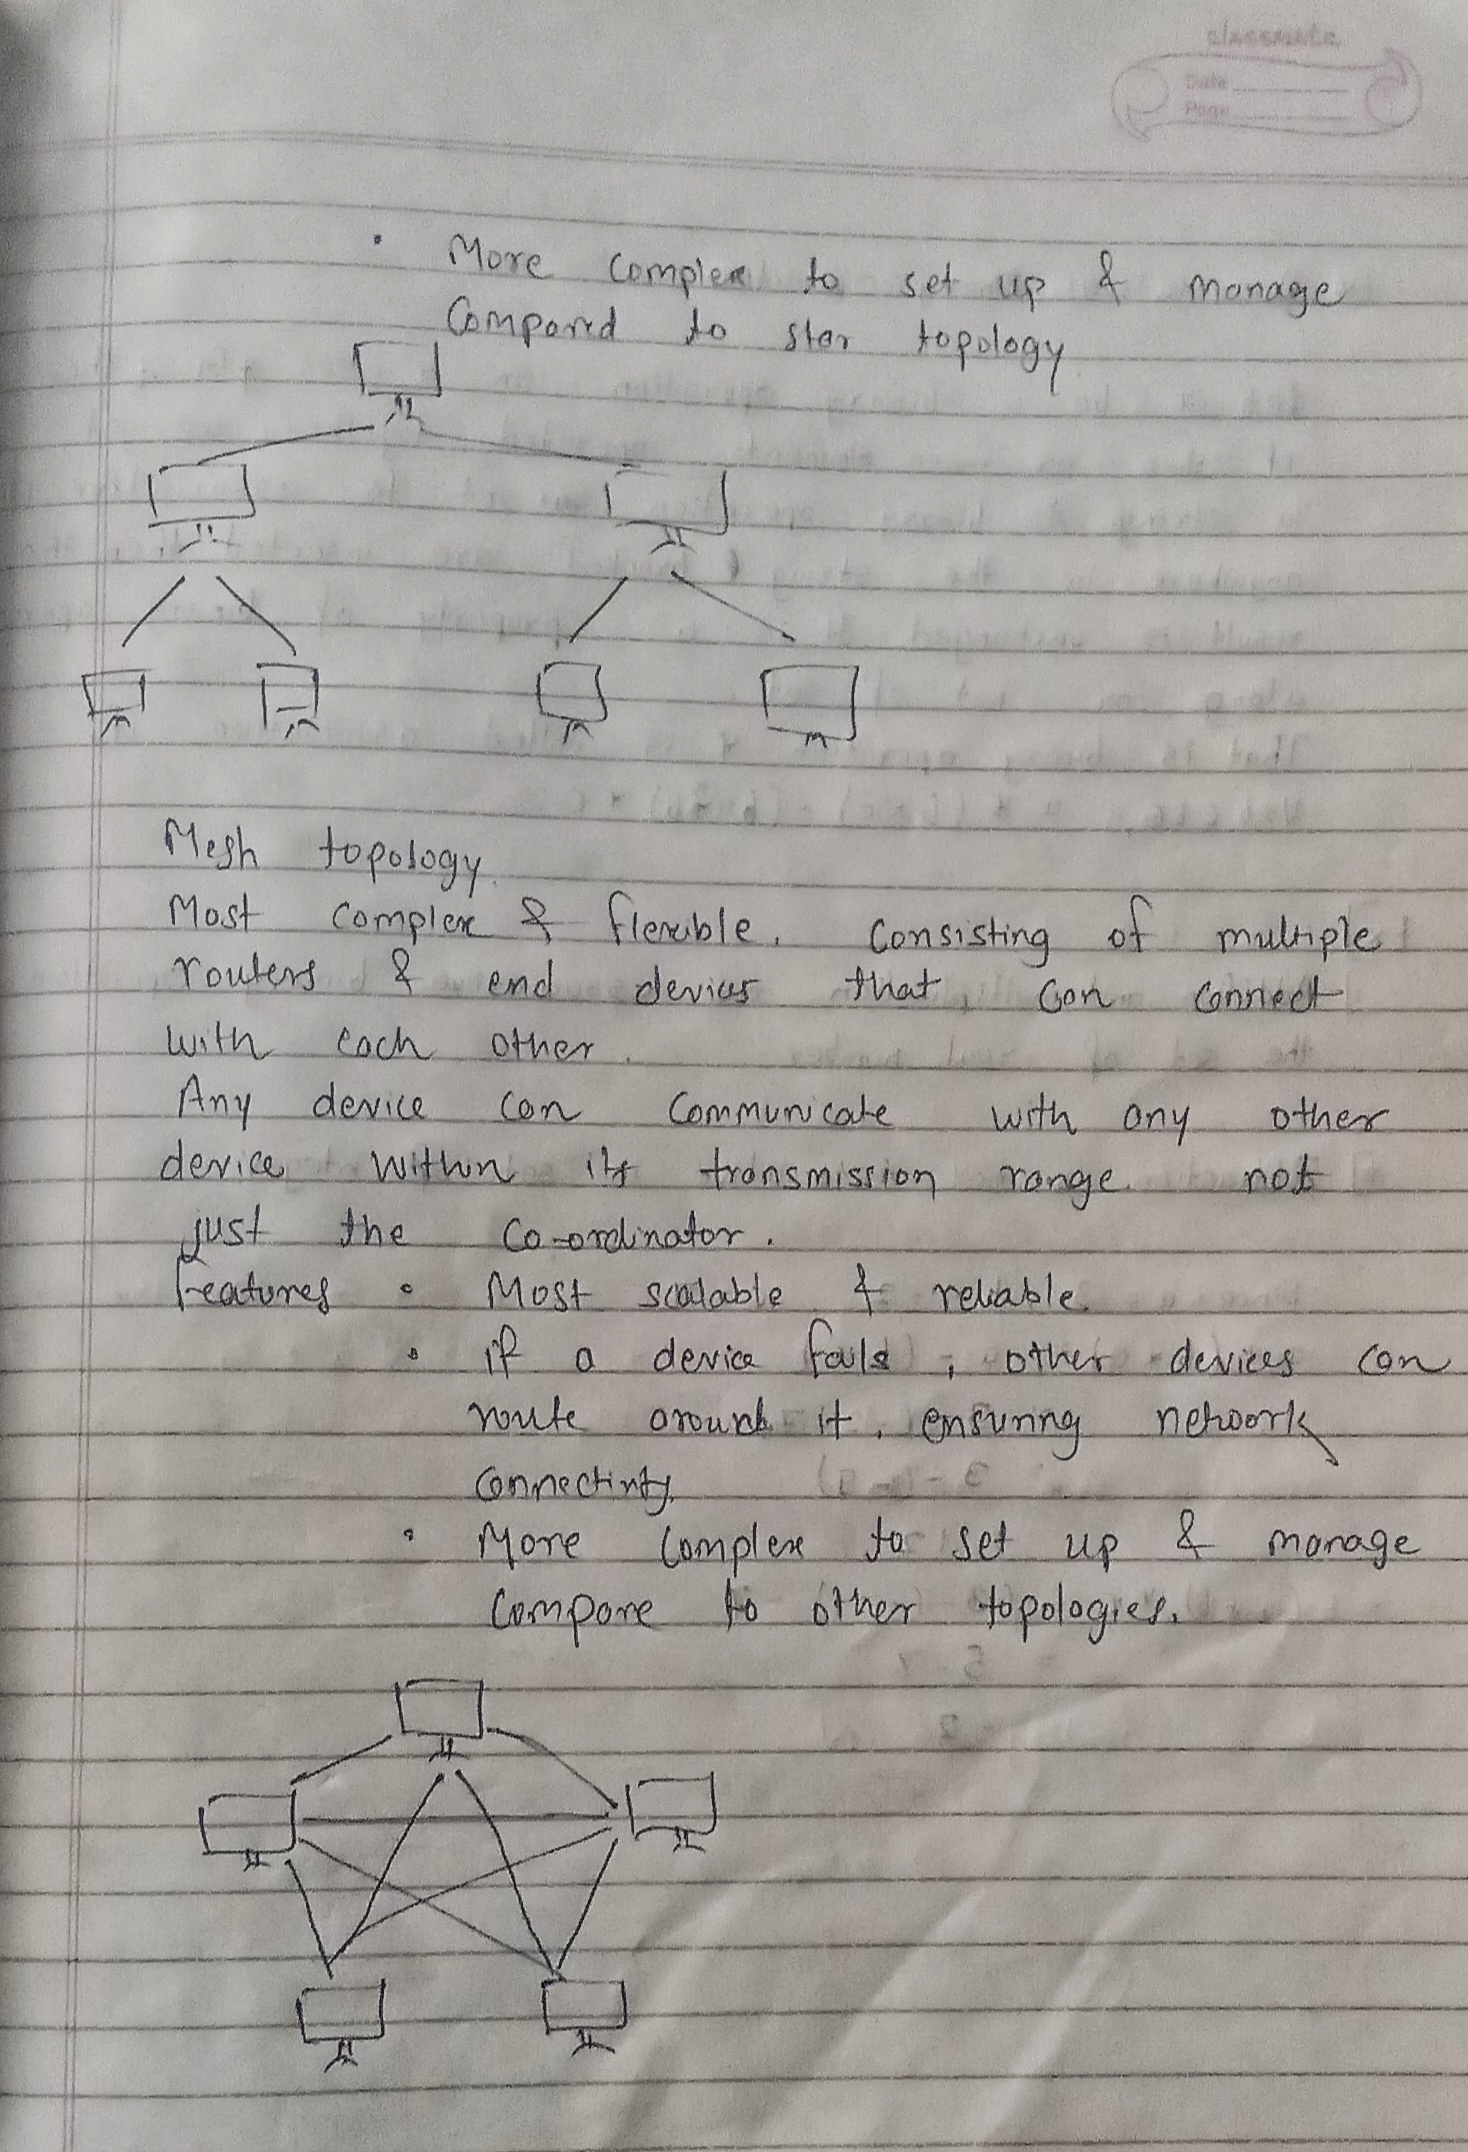 classmate
Date
Page
• More complex to set up & manage
Compared to star topology
Mesh topology.
Most complex & flexible. Consisting of multiple
routers & end devices that can connect
with each other.
Any device can communicate with any other
device within its transmission range. not
just the co-ordinator.
Features • Most scalable & reliable.
• if a device fails, other devices can
route around it, ensuring network
connectivity.
• More complex to set up & manage
compare to other topologies.